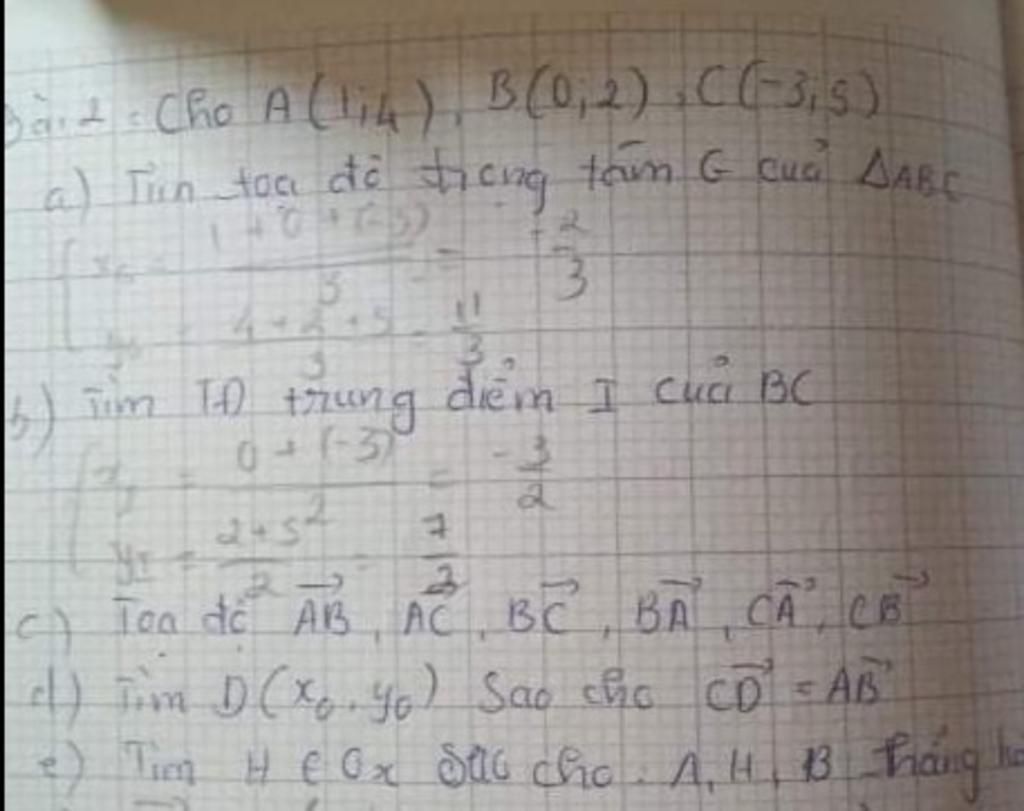 Bài 2: Cho A(1;4), B(0;2), C(-3;5)
a) Tìm tọa độ trọng tâm G của ΔABC
x_G = (1 + 0 + (-3))/3 = -2/3
y_G = (4 + 2 + 5)/3 = 11/3
b) Tìm TĐ trung điểm I của BC
x_I = (0 + (-3))/2 = -3/2
y_I = (2 + 5)/2 = 7/2
c) Tọa độ AB→, AC→, BC→, BA→, CA→, CB→
d) Tìm D(x₀, y₀) Sao cho CD→ = AB→
e) Tìm H ∈ Ox Sao cho A, H, B thẳng